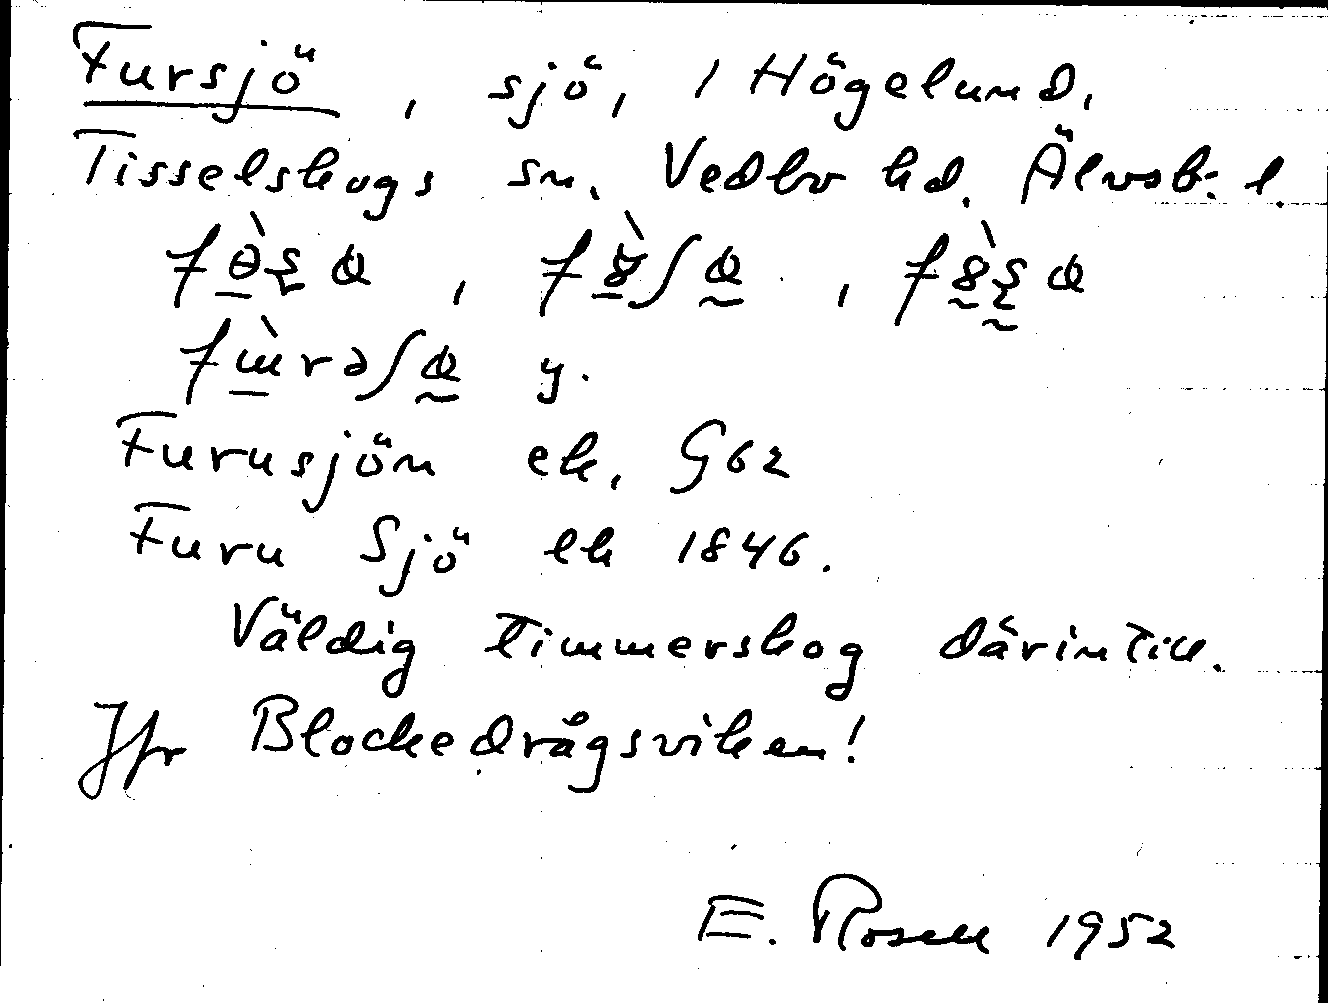 Fursjö, sjö, 1 Högelund,
Tisselskogs sn. Vedbo hd. Älvsb. l.
y.
Furusjön ek. G62
Furu Sjö lh 1846.
Väldig timmerskog därintill.
Jfr Blockedrågsviken!
E. Rosell 1952